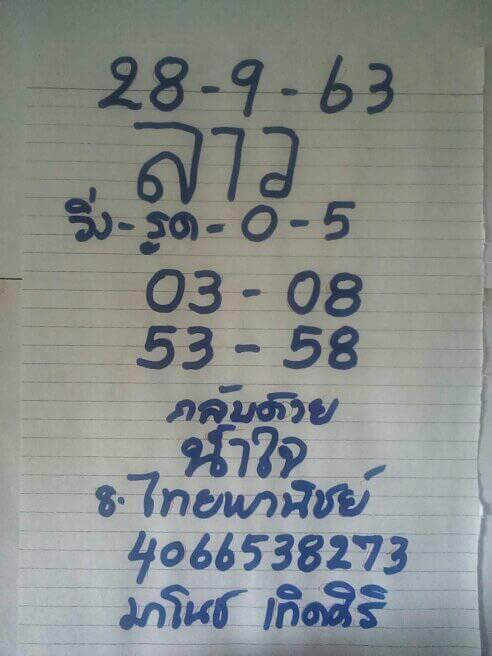 28-9-63
ลาว
วิ่ง-รูด-0-5
03-08
53-58
กลับด้วย
น้ำใจ
ธ.ไทยพานิชย์
4066538273
มาโนช เกิดศิริ